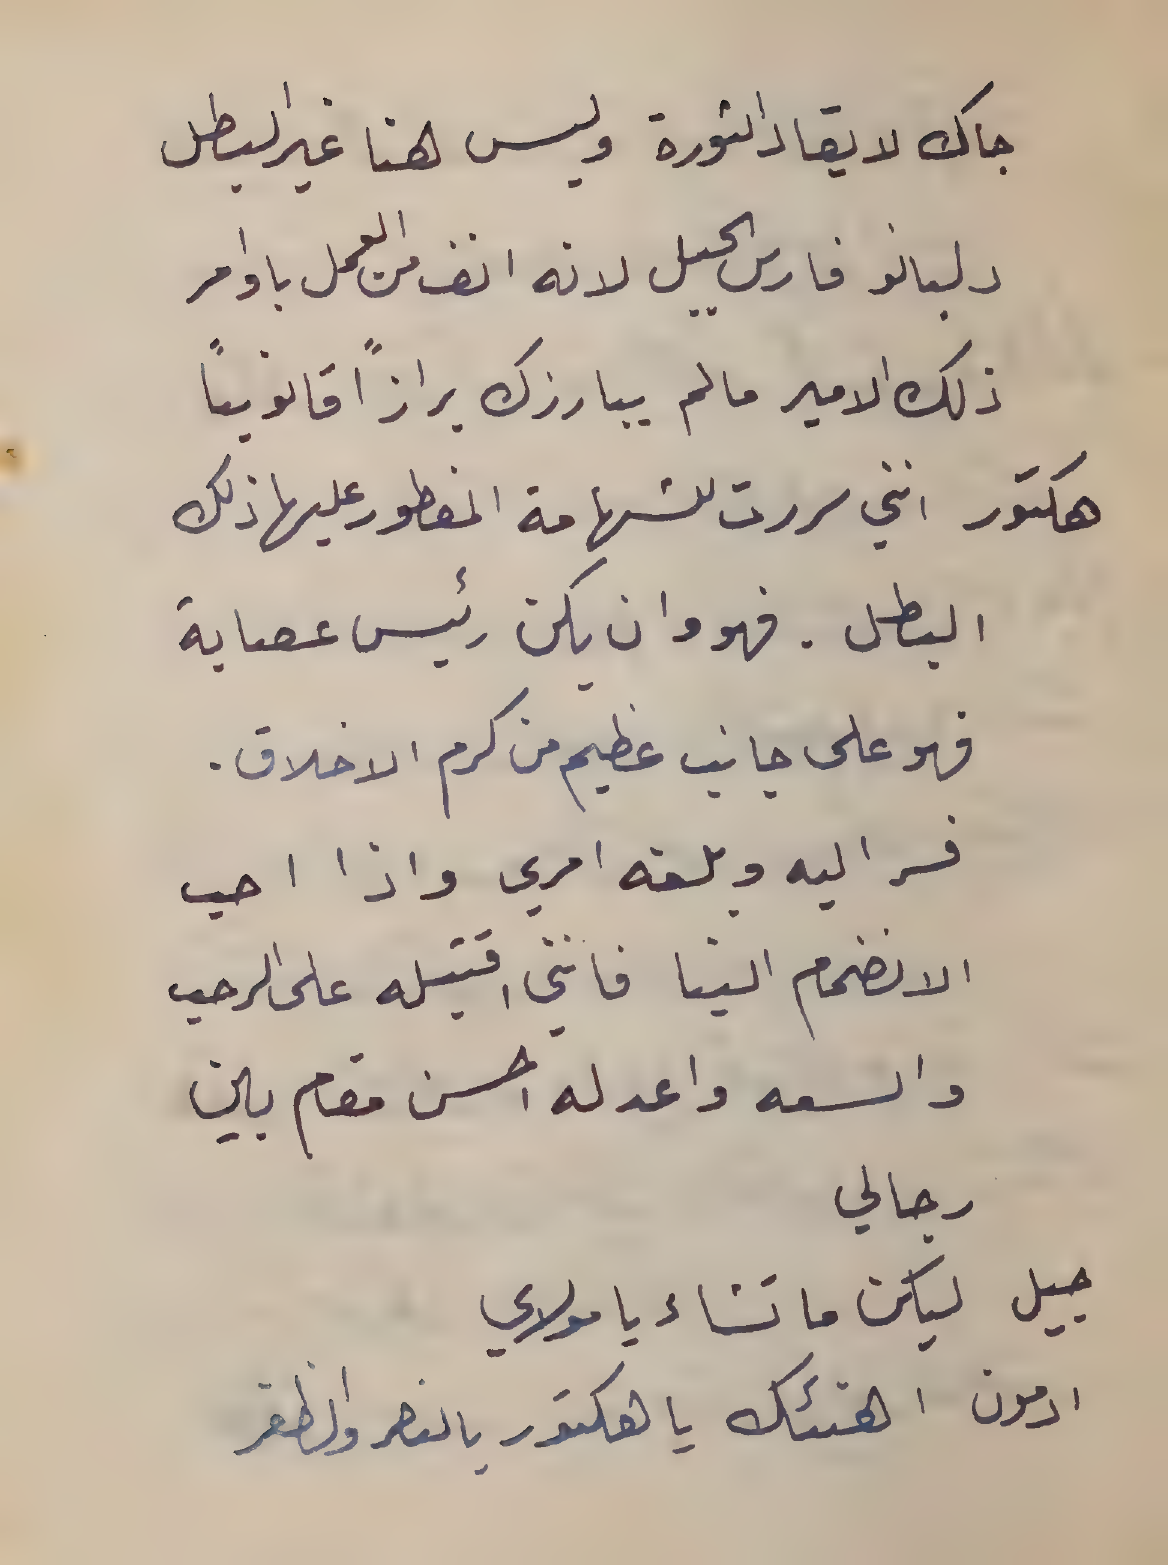 جاك لايقاد الثورة وليس هنا غير البطل
دلبانو فارس الجبيل لانه انف من العمل باوامر
ذلك الامير مالم يبارزك برازاً قانونياً
هكتور انني سررت للشهامة المفطور عليها ذلك
البطل . فهو وان يكن رئيس عصابة
فهو على جانب عظيم من كرم الاخلاق .
فسر اليه وبلغه امري واذا احب
الانضمام الينا فانني اقتبله على الرحب
والسعه واعد له احسن مقام بين
رجالي
جيل ليكن ما تشاء يا مولاي
ادمون اهنئك يا هكتور بالنصر والظفر